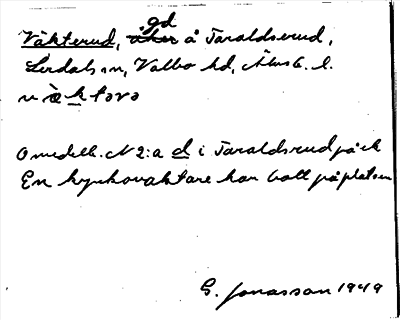 Väkterud, gd å Taraldserud,
Lerdals sn, Valbo hd, Älvsb. l.
væktərə
Omedelb. N 2:a d i Taraldsrud på ek
En kyrkovaktare har bott på platsen
G. Jonasson 1949